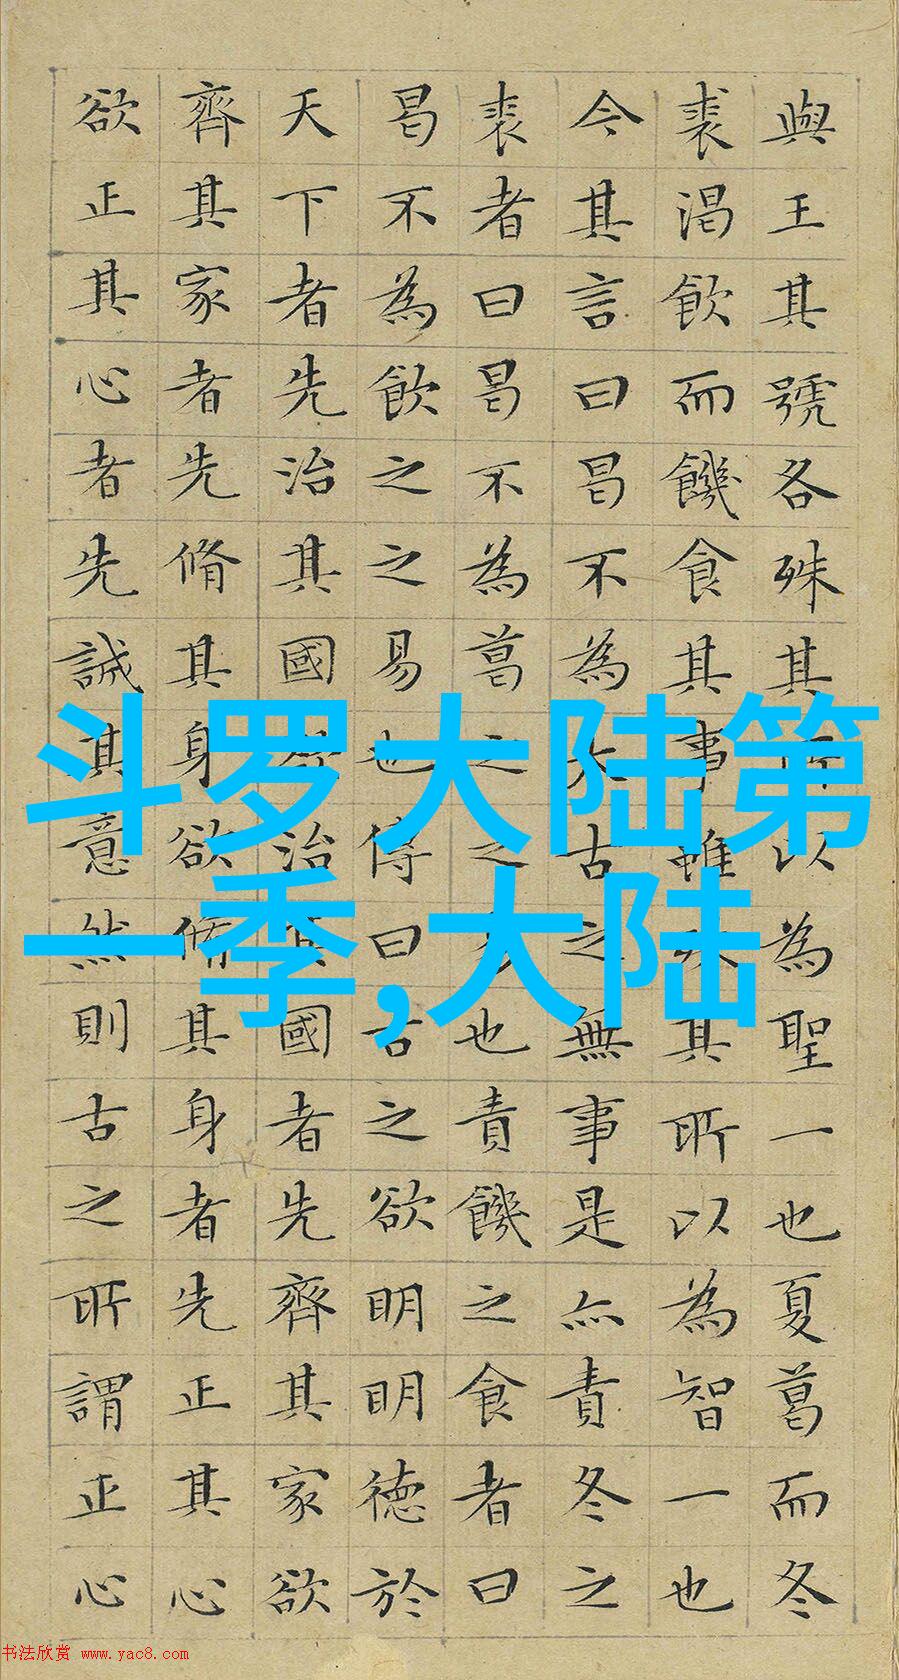 與王其號各殊其所以為聖一也夏葛而冬
裘渴飲而饑食其事雖殊其所以為智一也
今其言曰曷不為太古之無事是亦責冬之
裘者曰曷不為葛之之易也責饑之食者曰
曷不為飲之之易也傳曰古之欲明明德於
天下者先治其國欲治其國者先齊其家欲
齊其家者先脩其身欲脩其身者先正其心
欲正其心者先誠其意然則古之所謂正心
斗罗大陆第
一季,大陆
书法欣赏 www.yac8.com